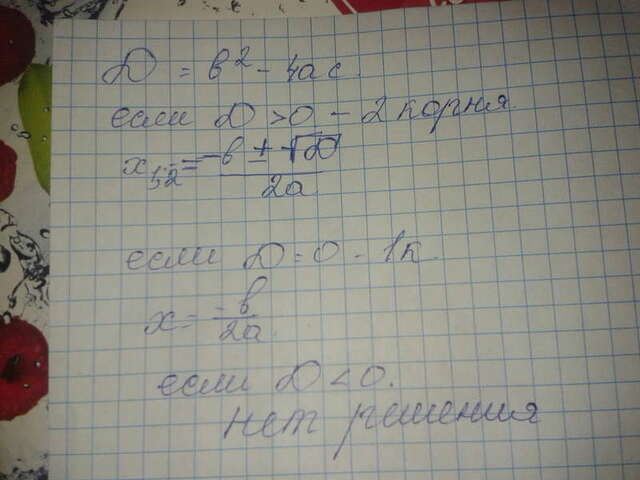 D = в² - 4ac.
если D > 0 - 2 корня
x₁,₂ = -в ± √D / 2a
если D = 0 - 1к.
x = -в / 2a.
если D < 0.
нет решения